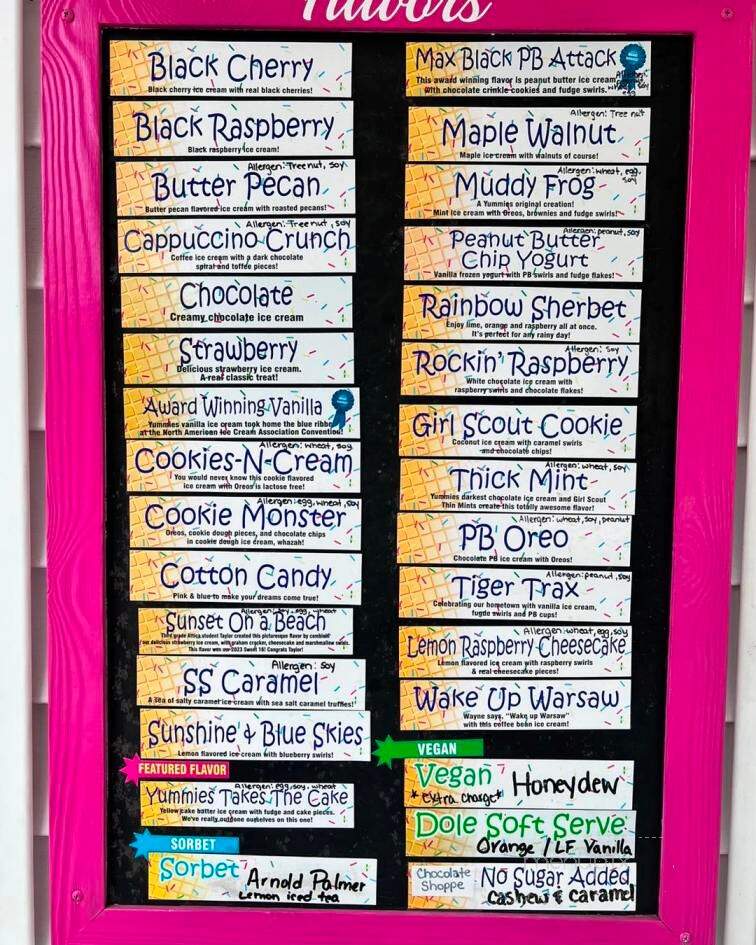 flavors
Black Cherry
Black cherry ice cream with real black cherries!
Black Raspberry
Black raspberry ice cream!
Allergen: Tree nut, soy
Butter Pecan
Butter pecan flavored ice cream with roasted pecans!
Allergen: Tree nut, soy
Cappuccino Crunch
Coffee ice cream with a dark chocolate
spiral and toffee pieces!
Chocolate
Creamy chocolate ice cream
Strawberry
Delicious strawberry ice cream.
A real classic treat!
Award Winning Vanilla
Yummies vanilla ice cream took home the blue ribbon
at the North American Ice Cream Association Convention!
Allergen: wheat, soy
Cookies-N-Cream
You would never know this cookie flavored
ice cream with Oreos is lactose free!
Allergen: egg, wheat, soy
Cookie Monster
Oreos, cookie dough pieces, and chocolate chips
in cookie dough ice cream, whazah!
Cotton Candy
Pink & blue to make your dreams come true!
Allergen: soy, egg, wheat
Sunset On a Beach
Third grade Attica student Taylor created this picturesque flavor by combining
our delicious strawberry ice cream, with graham cracker, cheesecake and marshmallow swirls.
This flavor won our 2023 Sweet 16! Congrats Taylor!
Allergen: soy
SS Caramel
A sea of salty caramel ice cream with sea salt caramel truffles!
Sunshine & Blue Skies
Lemon flavored ice cream with blueberry swirls!
FEATURED FLAVOR
Allergen: egg, soy, wheat
Yummies Takes The Cake
Yellow cake batter ice cream with fudge and cake pieces.
We've really outdone ourselves on this one!
SORBET
Sorbet Arnold Palmer
Lemon iced tea
Max Black PB Attack
This award winning flavor is peanut butter ice cream
with chocolate crinkle cookies and fudge swirls.
Allergen: Tree nut
Maple Walnut
Maple ice cream with walnuts of course!
Allergen: wheat, egg,
soy
Muddy Frog
A Yummies original creation!
Mint ice cream with Oreos, brownies and fudge swirls!
Allergen: peanut, soy
Peanut Butter
Chip Yogurt
Vanilla frozen yogurt with PB swirls and fudge flakes!
Rainbow Sherbet
Enjoy lime, orange and raspberry all at once.
It's perfect for any rainy day!
Allergen: soy
Rockin' Raspberry
White chocolate ice cream with
raspberry swirls and chocolate flakes!
Girl Scout Cookie
Coconut ice cream with caramel swirls
and chocolate chips!
Allergen: wheat, soy
Thick Mint
Yummies darkest chocolate ice cream and Girl Scout
Thin Mints create this totally awesome flavor!
Allergen: wheat, soy, peanut
PB Oreo
Chocolate PB ice cream with Oreos!
Allergen: peanut, soy
Tiger Trax
Celebrating our hometown with vanilla ice cream,
fugde swirls and PB cups!
Allergen: wheat, egg, soy
Lemon Raspberry Cheesecake
Lemon flavored ice cream with raspberry swirls
& real cheesecake pieces!
Wake Up Warsaw
Wayne says, "Wake up Warsaw"
with this coffee bean ice cream!
VEGAN
Vegan Honeydew
*extra charge*
Dole Soft Serve
Orange / LF Vanilla
Chocolate
Shoppe
No Sugar Added
Cashew & Caramel